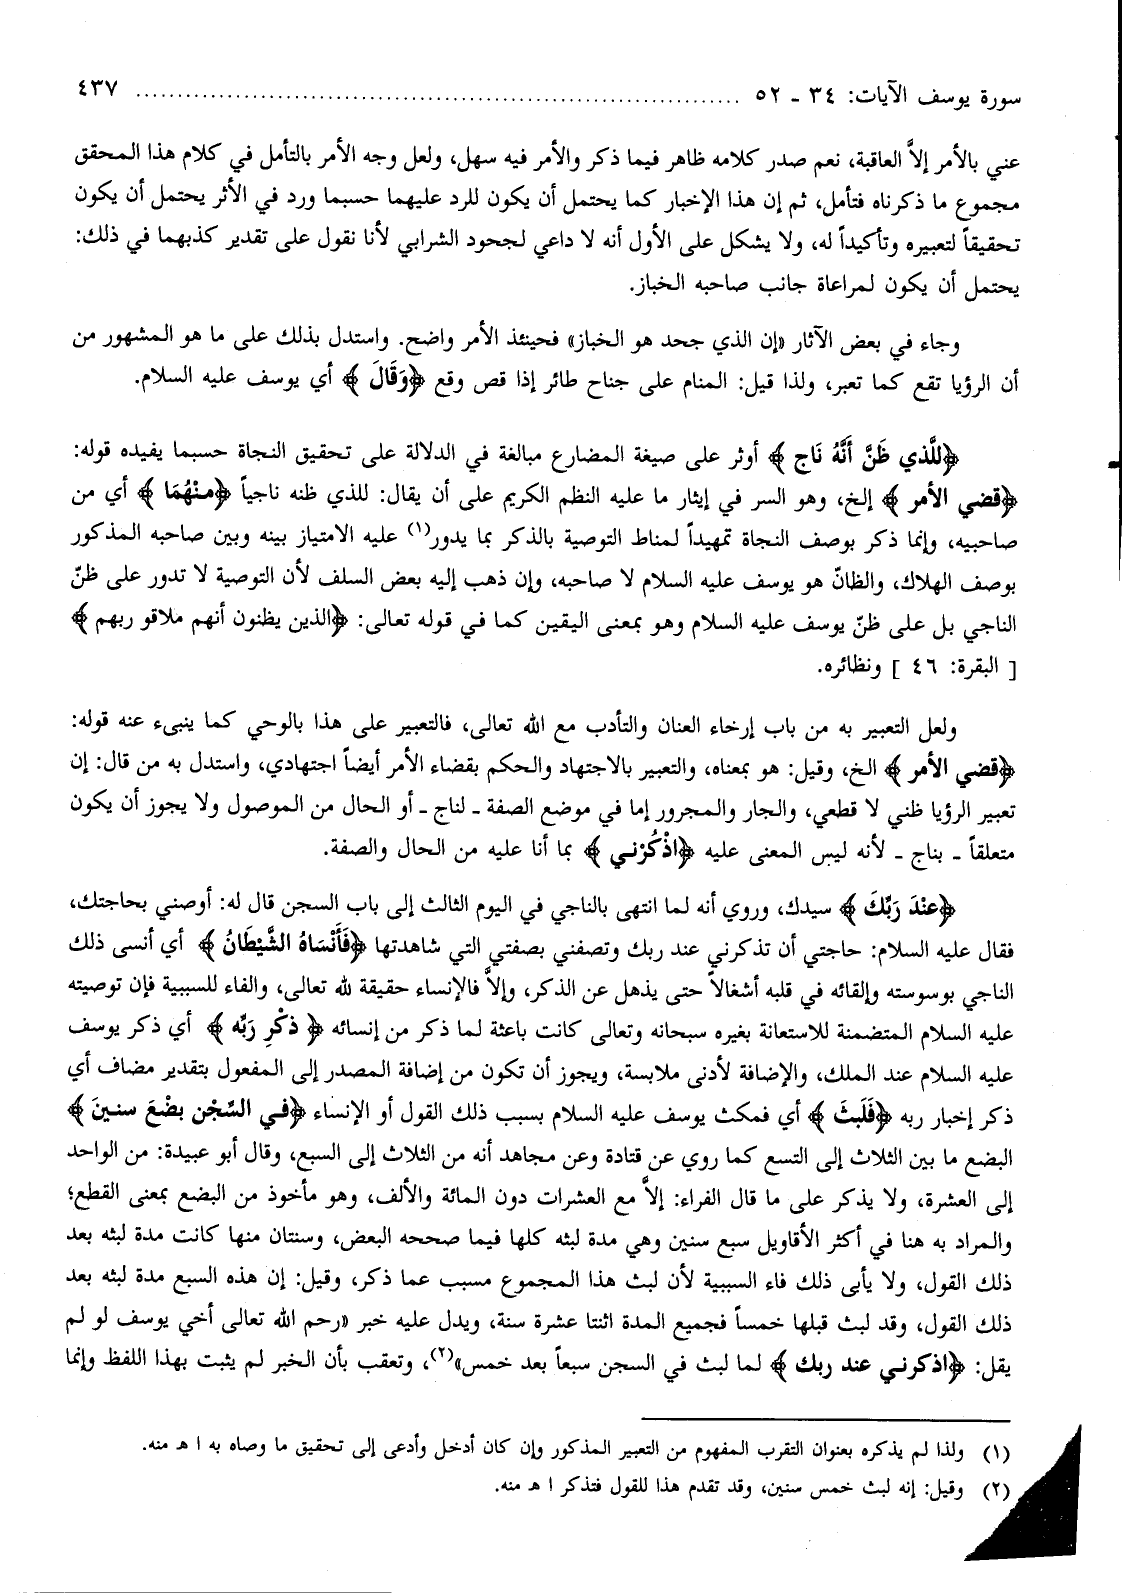 سورة يوسف الآيات: ٣٤ ـ ٥٢ ........................................................................ ٤٣٧
عني بالأمر إلاَّ العاقبة، نعم صدر كلامه ظاهر فيما ذكر والأمر فيه سهل، ولعل وجه الأمر بالتأمل في كلام هذا المحقق
مجموع ما ذكرناه فتأمل، ثم إن هذا الإخبار كما يحتمل أن يكون للرد عليهما حسبما ورد في الأثر يحتمل أن يكون
تحقيقاً لتعبيره وتأكيداً له، ولا يشكل على الأول أنه لا داعي لجحود الشرابي لأنا نقول على تقدير كذبهما في ذلك:
يحتمل أن يكون لمراعاة جانب صاحبه الخباز.
وجاء في بعض الآثار «إن الذي جحد هو الخباز» فحينئذ الأمر واضح. واستدل بذلك على ما هو المشهور من
أن الرؤيا تقع كما تعبر، ولذا قيل: المنام على جناح طائر إذا قص وقع ﴿وَقَالَ﴾ أي يوسف عليه السلام.
﴿للَّذي ظَنَّ أَنَّهُ نَاج﴾ أوثر على صيغة المضارع مبالغة في الدلالة على تحقيق النجاة حسبما يفيده قوله:
﴿قضي الأمر﴾ إلخ، وهو السر في إيثار ما عليه النظم الكريم على أن يقال: للذي ظنه ناجياً ﴿منْهُمَا﴾ أي من
صاحبيه، وإنما ذكر بوصف النجاة تمهيداً لمناط التوصية بالذكر بما يدور(١) عليه الامتياز بينه وبين صاحبه المذكور
بوصف الهلاك، والظانّ هو يوسف عليه السلام لا صاحبه، وإن ذهب إليه بعض السلف لأن التوصية لا تدور على ظنّ
الناجي بل على ظنّ يوسف عليه السلام وهو بمعنى اليقين كما في قوله تعالى: ﴿الذين يظنون أنهم ملاقو ربهم﴾
[ البقرة: ٤٦ ] ونظائره.
ولعل التعبير به من باب إرخاء العنان والتأدب مع الله تعالى، فالتعبير على هذا بالوحي كما ينبىء عنه قوله:
﴿قضي الأمر﴾ الخ، وقيل: هو بمعناه، والتعبير بالاجتهاد والحكم بقضاء الأمر أيضاً اجتهادي، واستدل به من قال: إن
تعبير الرؤيا ظني لا قطعي، والجار والمجرور إما في موضع الصفة ـ لناج ـ أو الحال من الموصول ولا يجوز أن يكون
متعلقاً ـ بناج ـ لأنه ليس المعنى عليه ﴿اذْكُرْني﴾ بما أنا عليه من الحال والصفة.
﴿عنْدَ رَبِّكَ﴾ سيدك، وروي أنه لما انتهى بالناجي في اليوم الثالث إلى باب السجن قال له: أوصني بحاجتك،
فقال عليه السلام: حاجتي أن تذكرني عند ربك وتصفني بصفتي التي شاهدتها ﴿فَأَنْسَاهُ الشَّيْطَانُ﴾ أي أنسى ذلك
الناجي بوسوسته وإلقائه في قلبه أشغالاً حتى يذهل عن الذكر، وإلاَّ فالإنساء حقيقة لله تعالى، والفاء للسببية فإن توصيته
عليه السلام المتضمنة للاستعانة بغيره سبحانه وتعالى كانت باعثة لما ذكر من إنسائه ﴿ذكْرِ رَبِّه﴾ أي ذكر يوسف
عليه السلام عند الملك، والإضافة لأدنى ملابسة، ويجوز أن تكون من إضافة المصدر إلى المفعول بتقدير مضاف أي
ذكر إخبار ربه ﴿فَلَبثَ﴾ أي فمكث يوسف عليه السلام بسبب ذلك القول أو الإنساء ﴿في السِّجْن بضْعَ سنينَ﴾
البضع ما بين الثلاث إلى التسع كما روي عن قتادة وعن مجاهد أنه من الثلاث إلى السبع، وقال أبو عبيدة: من الواحد
إلى العشرة، ولا يذكر على ما قال الفراء: إلاَّ مع العشرات دون المائة والألف، وهو مأخوذ من البضع بمعنى القطع؛
والمراد به هنا في أكثر الأقاويل سبع سنين وهي مدة لبثه كلها فيما صححه البعض، وسنتان منها كانت مدة لبثه بعد
ذلك القول، ولا يأبى ذلك فاء السببية لأن لبث هذا المجموع مسبب عما ذكر، وقيل: إن هذه السبع مدة لبثه بعد
ذلك القول، وقد لبث قبلها خمساً فجميع المدة اثنتا عشرة سنة، ويدل عليه خبر «رحم الله تعالى أخي يوسف لو لم
يقل: ﴿اذكرني عند ربك﴾ لما لبث في السجن سبعاً بعد خمس»(٢)، وتعقب بأن الخبر لم يثبت بهذا اللفظ وإنما
(١) ولذا لم يذكره بعنوان التقرب المفهوم من التعبير المذكور وإن كان أدخل وأدعى إلى تحقيق ما وصاه به ا هـ منه.
(٢) وقيل: إنه لبث خمس سنين، وقد تقدم هذا للقول فتذكر ا هـ منه.